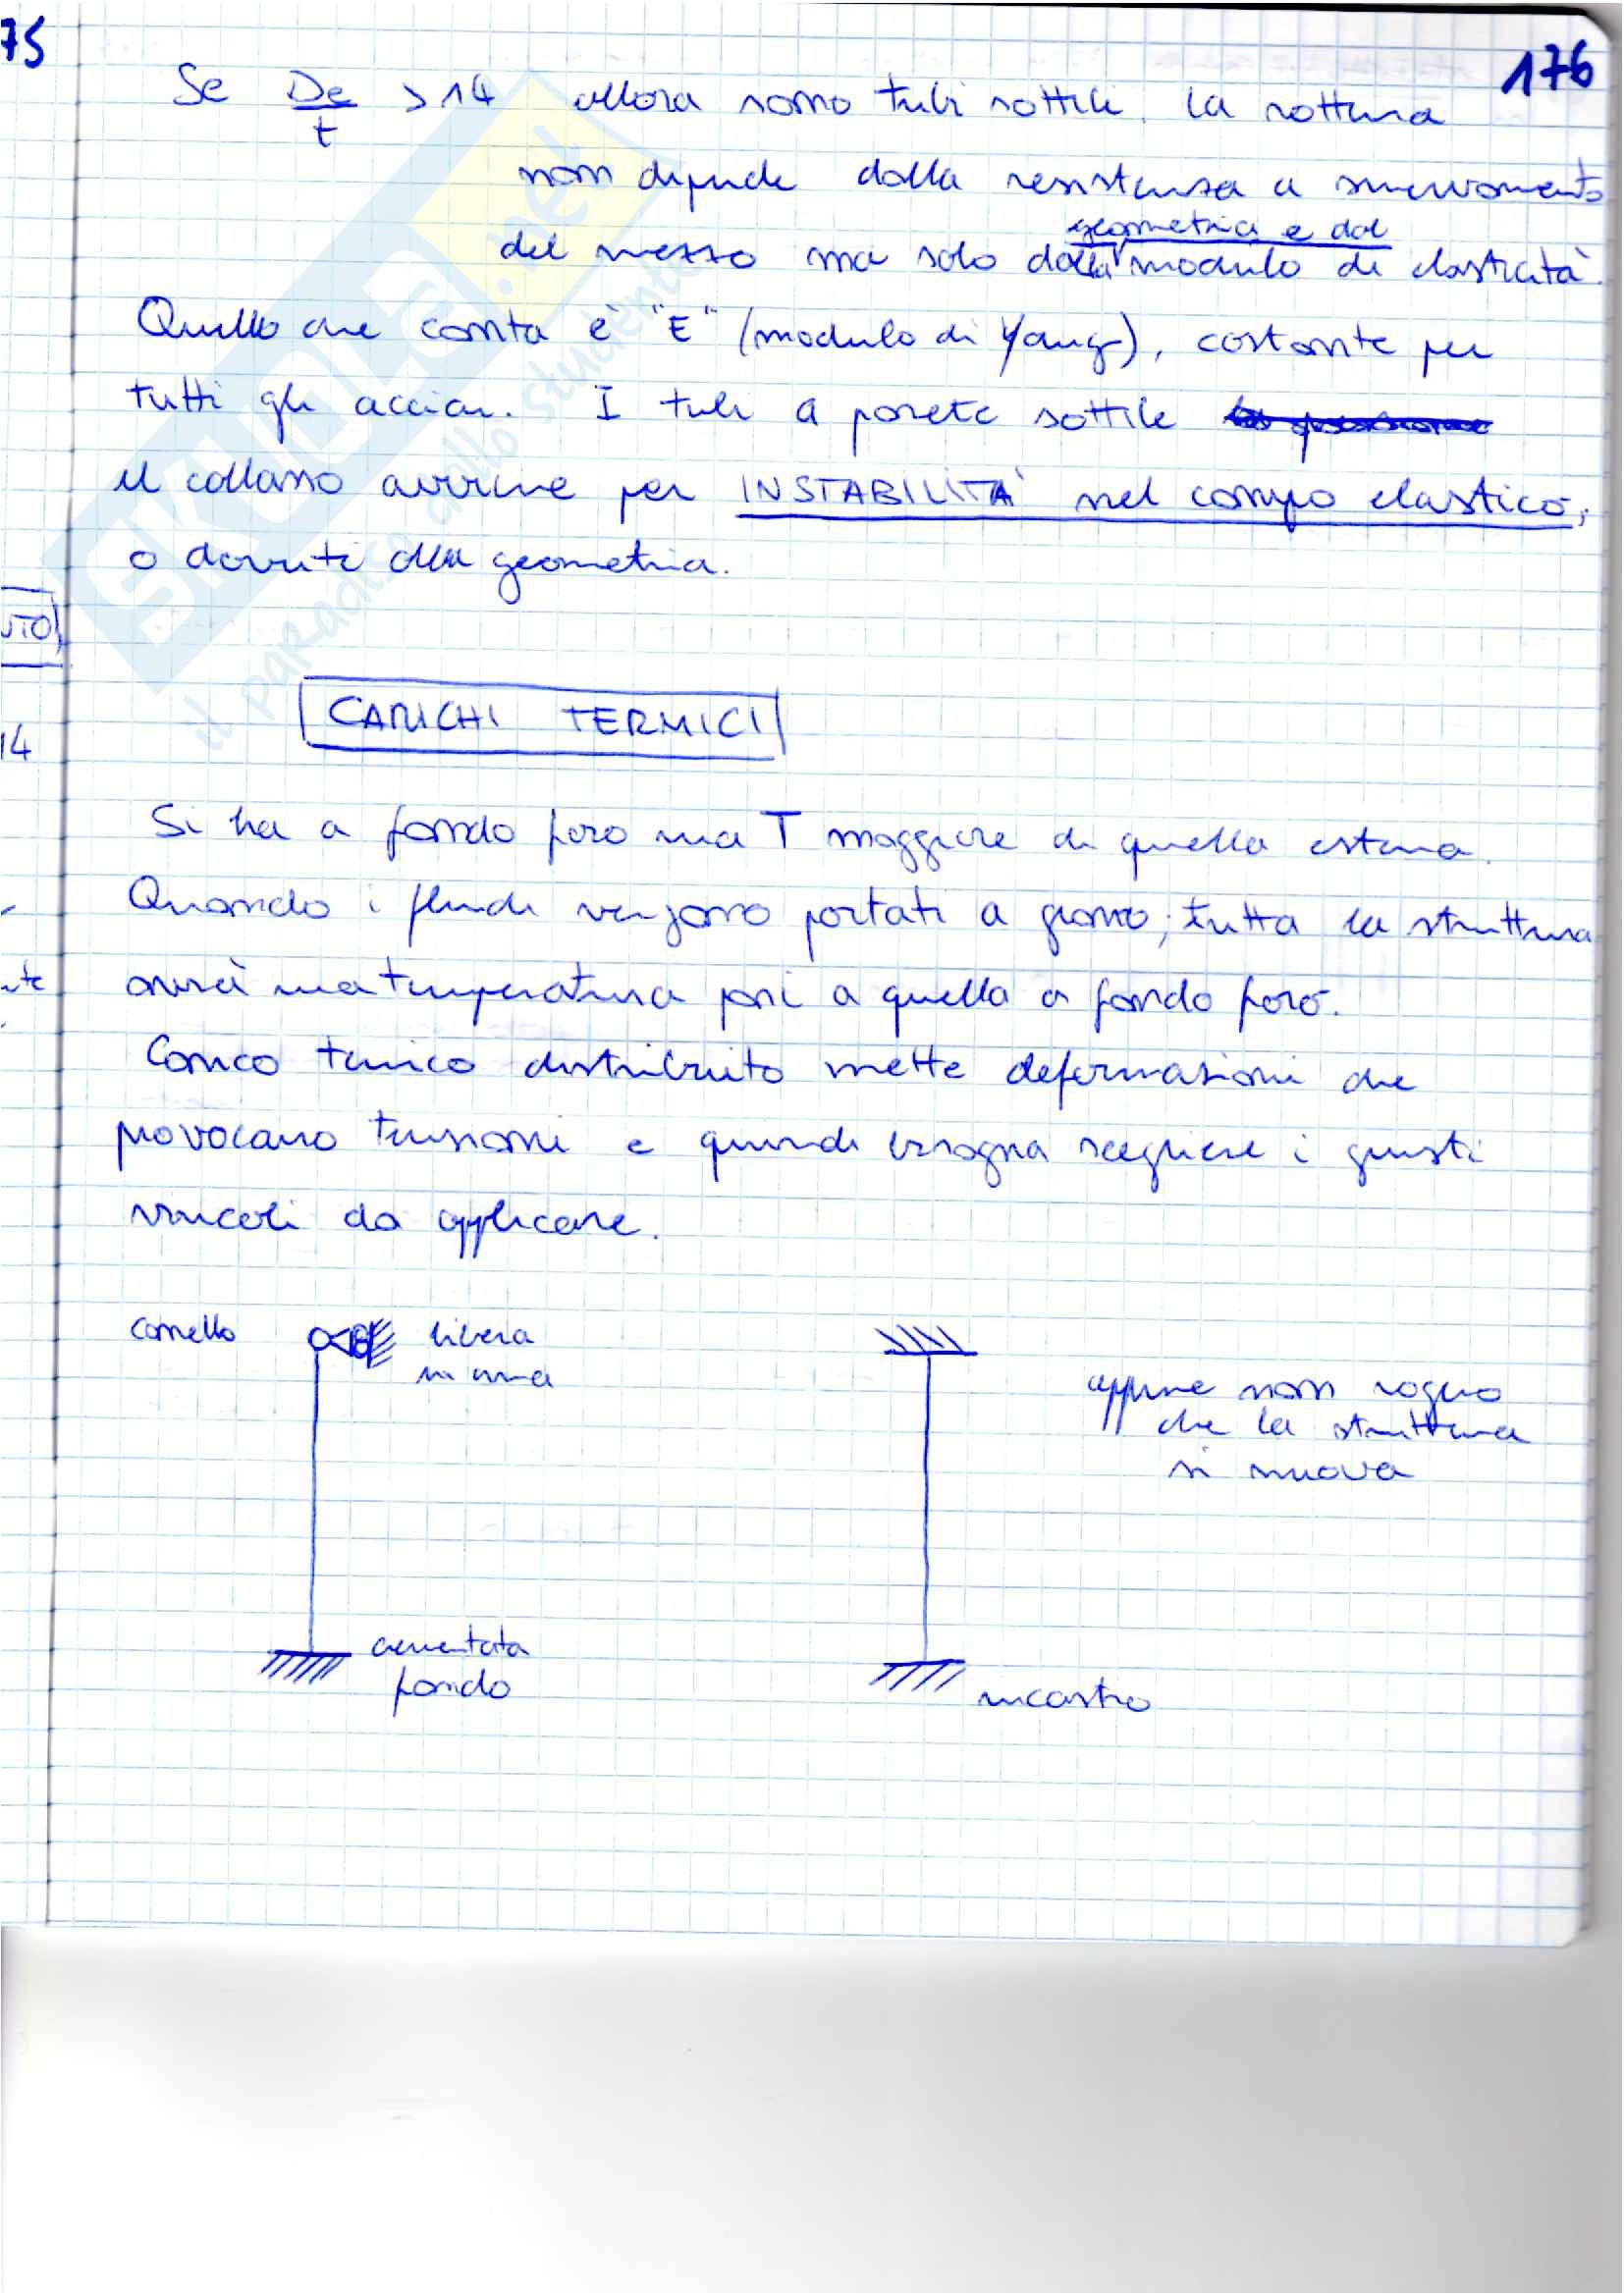 75
176
Se De/t > 14 allora sono tubi sottili. la rottura
non dipende dalla resistenza a snervamento
del mezzo ma solo dalla geometria e dal modulo di elasticità.
Quello che conta è "E" (modulo di Young), costante per
tutti gli acciai. I tubi a parete sottile
il collasso avviene per INSTABILITÀ nel campo elastico,
o dovuti alla geometria.
14
CARICHI TERMICI
Si ha a fondo foro una T maggiore di quella esterna.
Quando i fluidi vengono portati a giorno, tutta la struttura
avrà una temperatura pari a quella a fondo foro.
Carico termico distribuito mette deformazioni che
provocano tensioni e quindi bisogna scegliere i giusti
vincoli da applicare.
carrello
libera
in cima
oppure non voglio
che la struttura
si muova
cementata
fondo
incastro
skuola.net
il paradiso dello studente